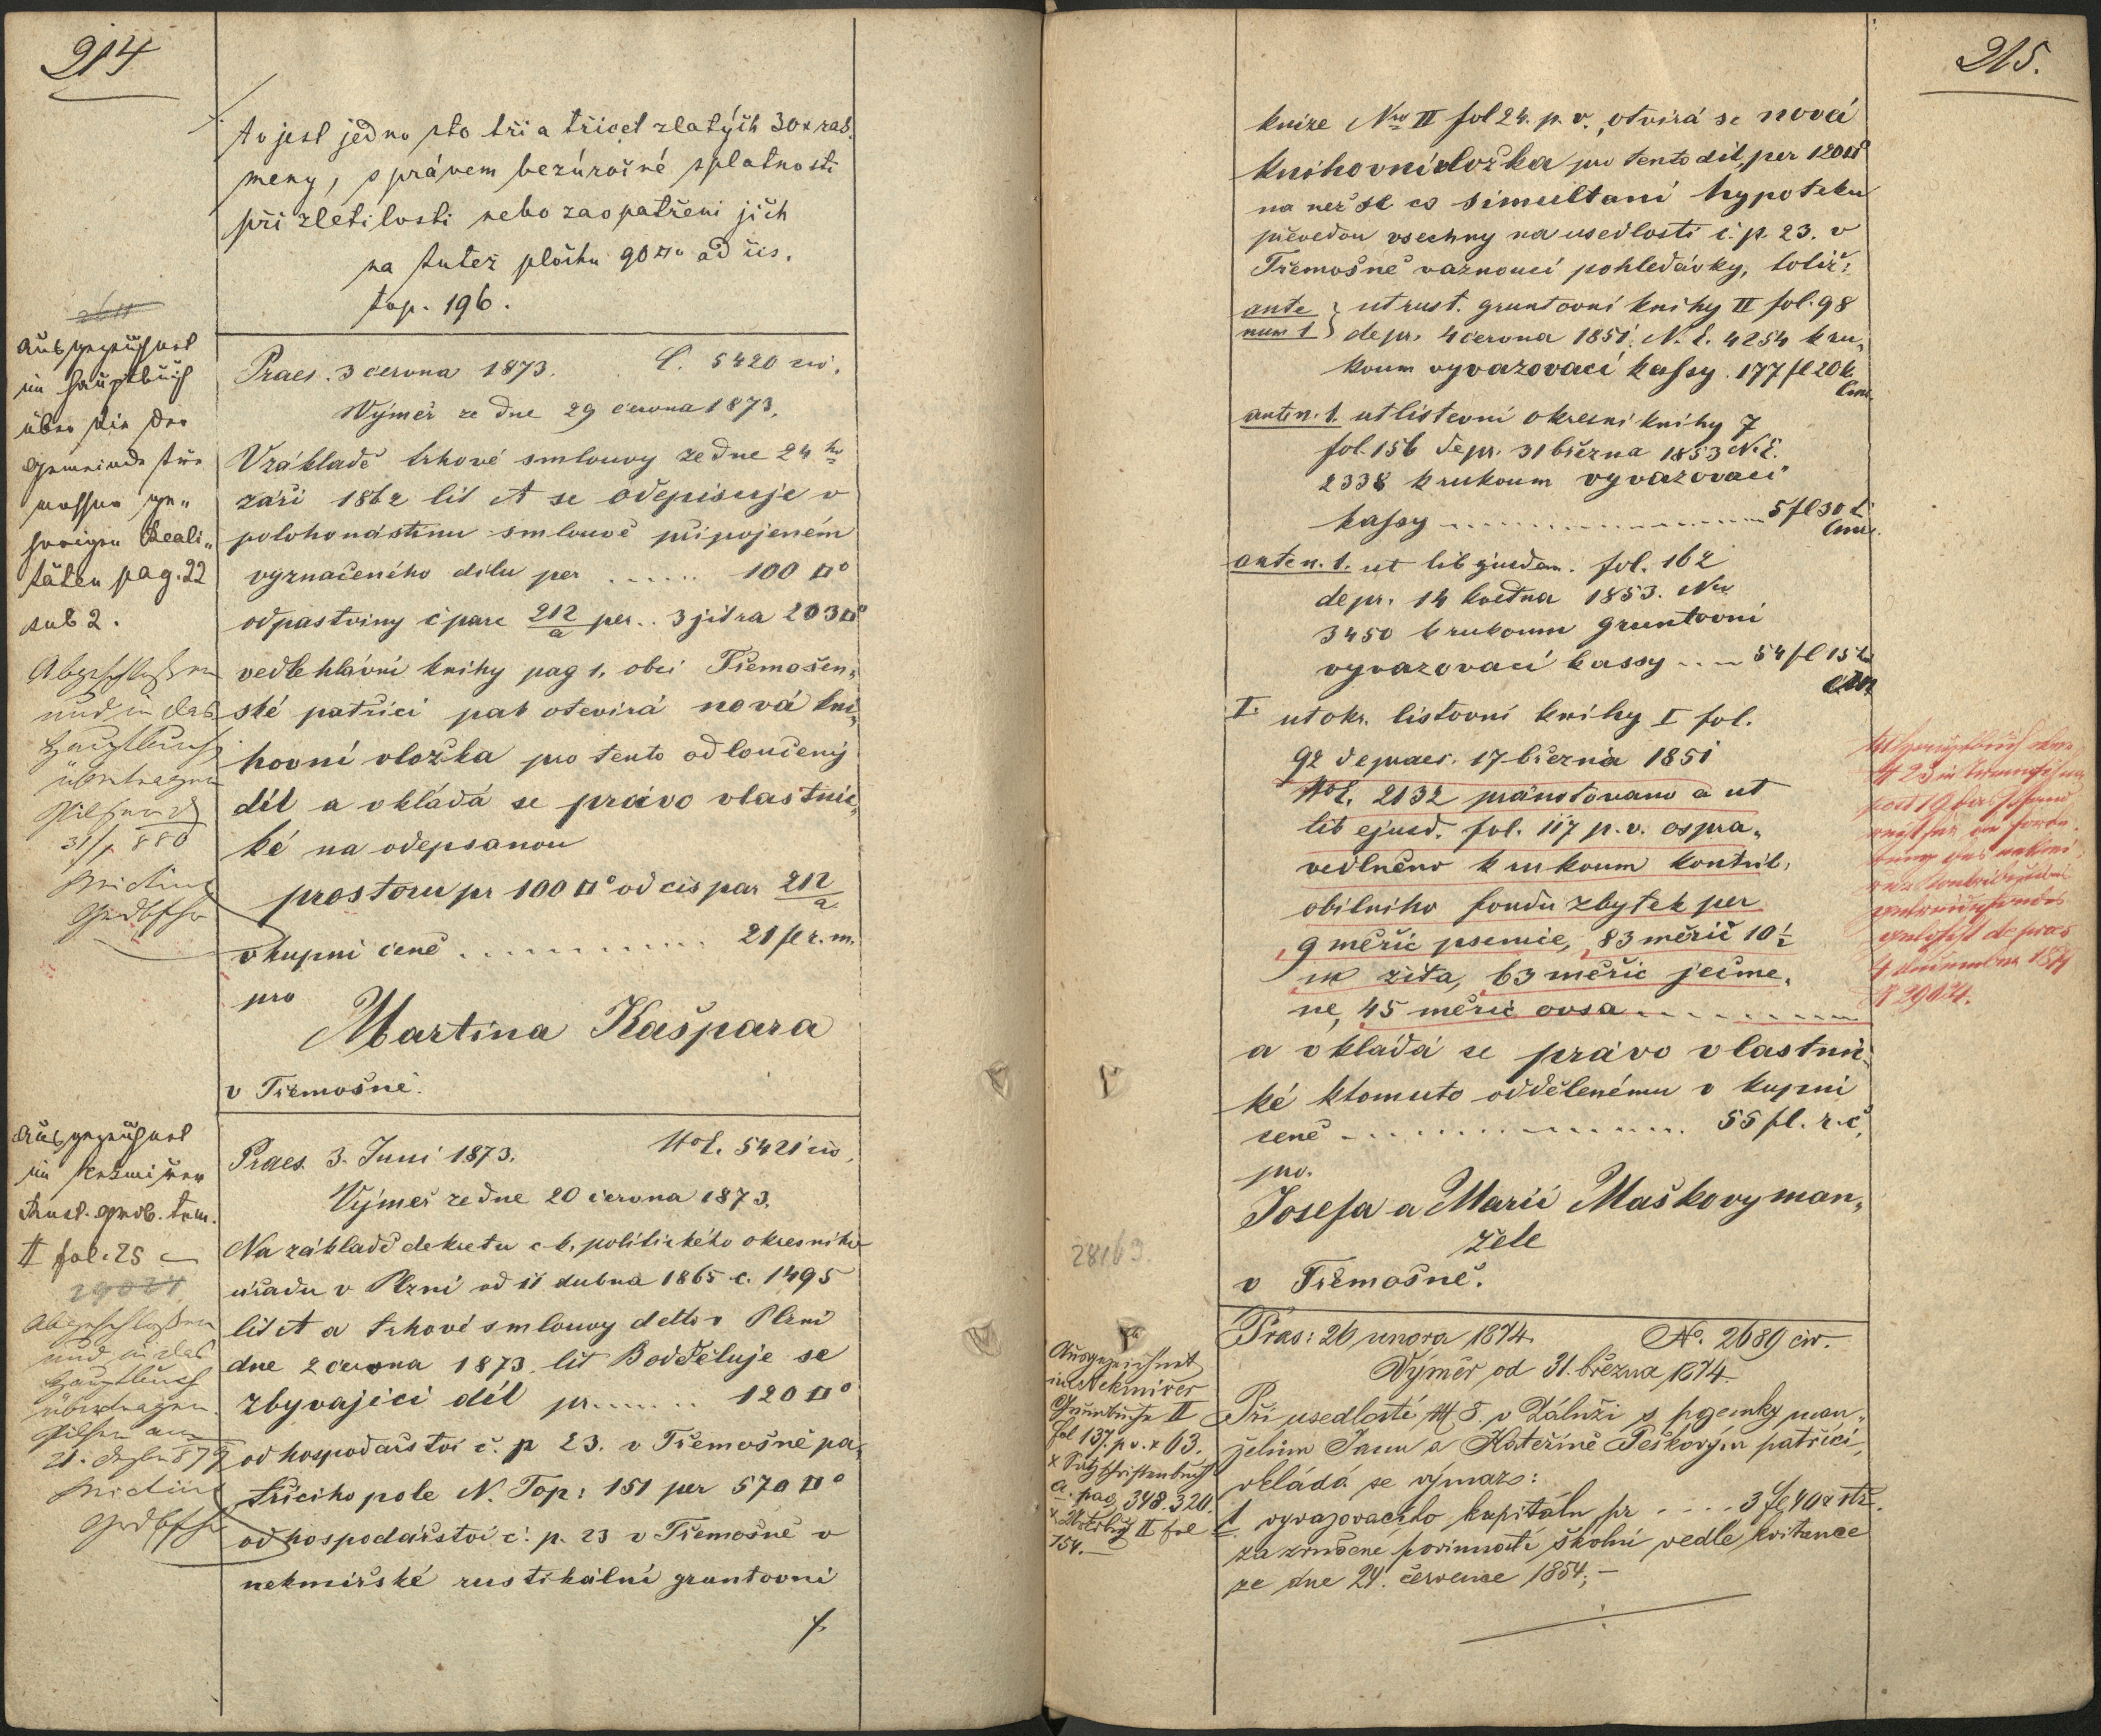 214
to jest jedno sto tři a třicet zlatých 30 x rak.
meny, s právem bezúročné splatnosti
při zletilosti nebo zaopatřeni jich
na tutež plochu 90□° od čis.
top. 196.
Ausgezeichnet
im Hauptbuch
über die der
Gemeinde Tře„
moschna ge„
hörigen Reali„
täten pag. 22
sub 2.
Abgeschlossen
und in das
Hauptbuch
übertragen
Pilsen d
31/ 880
Praes. 3 cervna 1873. Č. 5420 civ.
Výměr ze dne 29 června 1873.
V základě trhové smlouvy ze dne 24 ho
záři 1862 lit A se odepisuje v
polohonástinu smlouvě připojeném
vyznačeného dilu per ...... 100 □°
od pastviny č parc 212/a per .. 3 jitra 203□°
vedle hlavní knihy pag 1. obci Třemošen„
ské patřici pak otevirá nová kni„
hovní vložka pro tento odloučený
díl a vkládá se právo vlastnic„
ké na odepsanou
prostoru pr 100 □° od cis par 212/a
v kupni ceně ............ 21 fl r. m.
pro
Martina Kašpara
v Třemošné.
Ausgezeichnet
im Nekmiřer
Rust. Grdb. tom.
II fol. 25
29024
Abgeschlossen
und in das
Hauptbuch
übertragen.
Pilsen am
Praes. 3. Juni 1873. NoE. 5421 civ.
Výměr ze dne 20 června 1873.
Na základě dekretu c k. politického okresního
úřadu v Plzni od 11 dubna 1865 č. 1495
lit A a trhové smlouvy detto v Plzni
dne 2 června 1873 lit B odděluje se
zbyvajici díl pr. ...... 120 □°
od hospodařstvi č. p 23. v Třemošné pa„
třiciho pole N. Top: 151 per 570 □°
od hospodářství č. p. 23 v Třemošné v
nekmiřské rustikální gruntovni
./.
215.
knize Nro II fol 24. p. v., otvirá se nová
knihovní vložka pro tento dil per 120□°
na než se co simultani hypoteku
převedou vsechny na usedlosti č. p. 23. v
Třemošné vaznouci pohledávky, totiž:
ante num 1 } ut rust. gruntovní knihy II fol. 98
de pr. 4 června 1851. N. E. 4254 k ru„
koum vyvazovací kassy . 177 fl 20 k.
Cmz.
ante n. 1. ut listovní okresní knihy 7
fol. 156 de pr. 31 března 1853 N. E.
2338 k rukoum vyvazovací
kassy .................. 5 fl 30 k
Cmz.
ante n. 1. ut lib ejusdem. fol. 162
de pr. 14 května 1853. Nro
3450 k rukoum gruntovni
vyvazovací kassy .... 54 fl 15 k
Cmz
I. ut okr. listovní knihy I fol.
92 de praes. 17 března 1851
NoE. 2132 pránotováno a ut
lib ejusd. fol. 117 p. v. ospra„
vedlněno k rukoum kontrib.
obilniho fondu zbytek per
9 měřic psenice, 83 měřic 10 1/2
m žita, 63 měřic ječme„
ne, 45 měřic ovsa ..........
a vkládá se právo vlastnic„
ké k tomuto oddělenému v kupni
ceně ................ 55 fl. r. č.
pro.
Josefa a Marii Maškovy man„
žele
v Třemošné.
de praes
4 december 1874
N 29024.
28169
Ausgezeichnet
im Nekmirer
Grundbuche II
fol 137. p v. x 63.
a. pag. 348. 320.
II fol
154.
Präs: 26 unora 1874. No. 2689 civ.
Výměr od 31. března 1874.
Při usedlosti, N 8. v Záluží s pozemky man„
želům Janu a Kateřině Peškovým patřící,
vkládá se výmaz:
1 vyvazovacího kapitálu pr .... 3 fl 40 x stř.
za zrušené povinnosti školní vedle kvitance
ze dne 24. července 1854; –